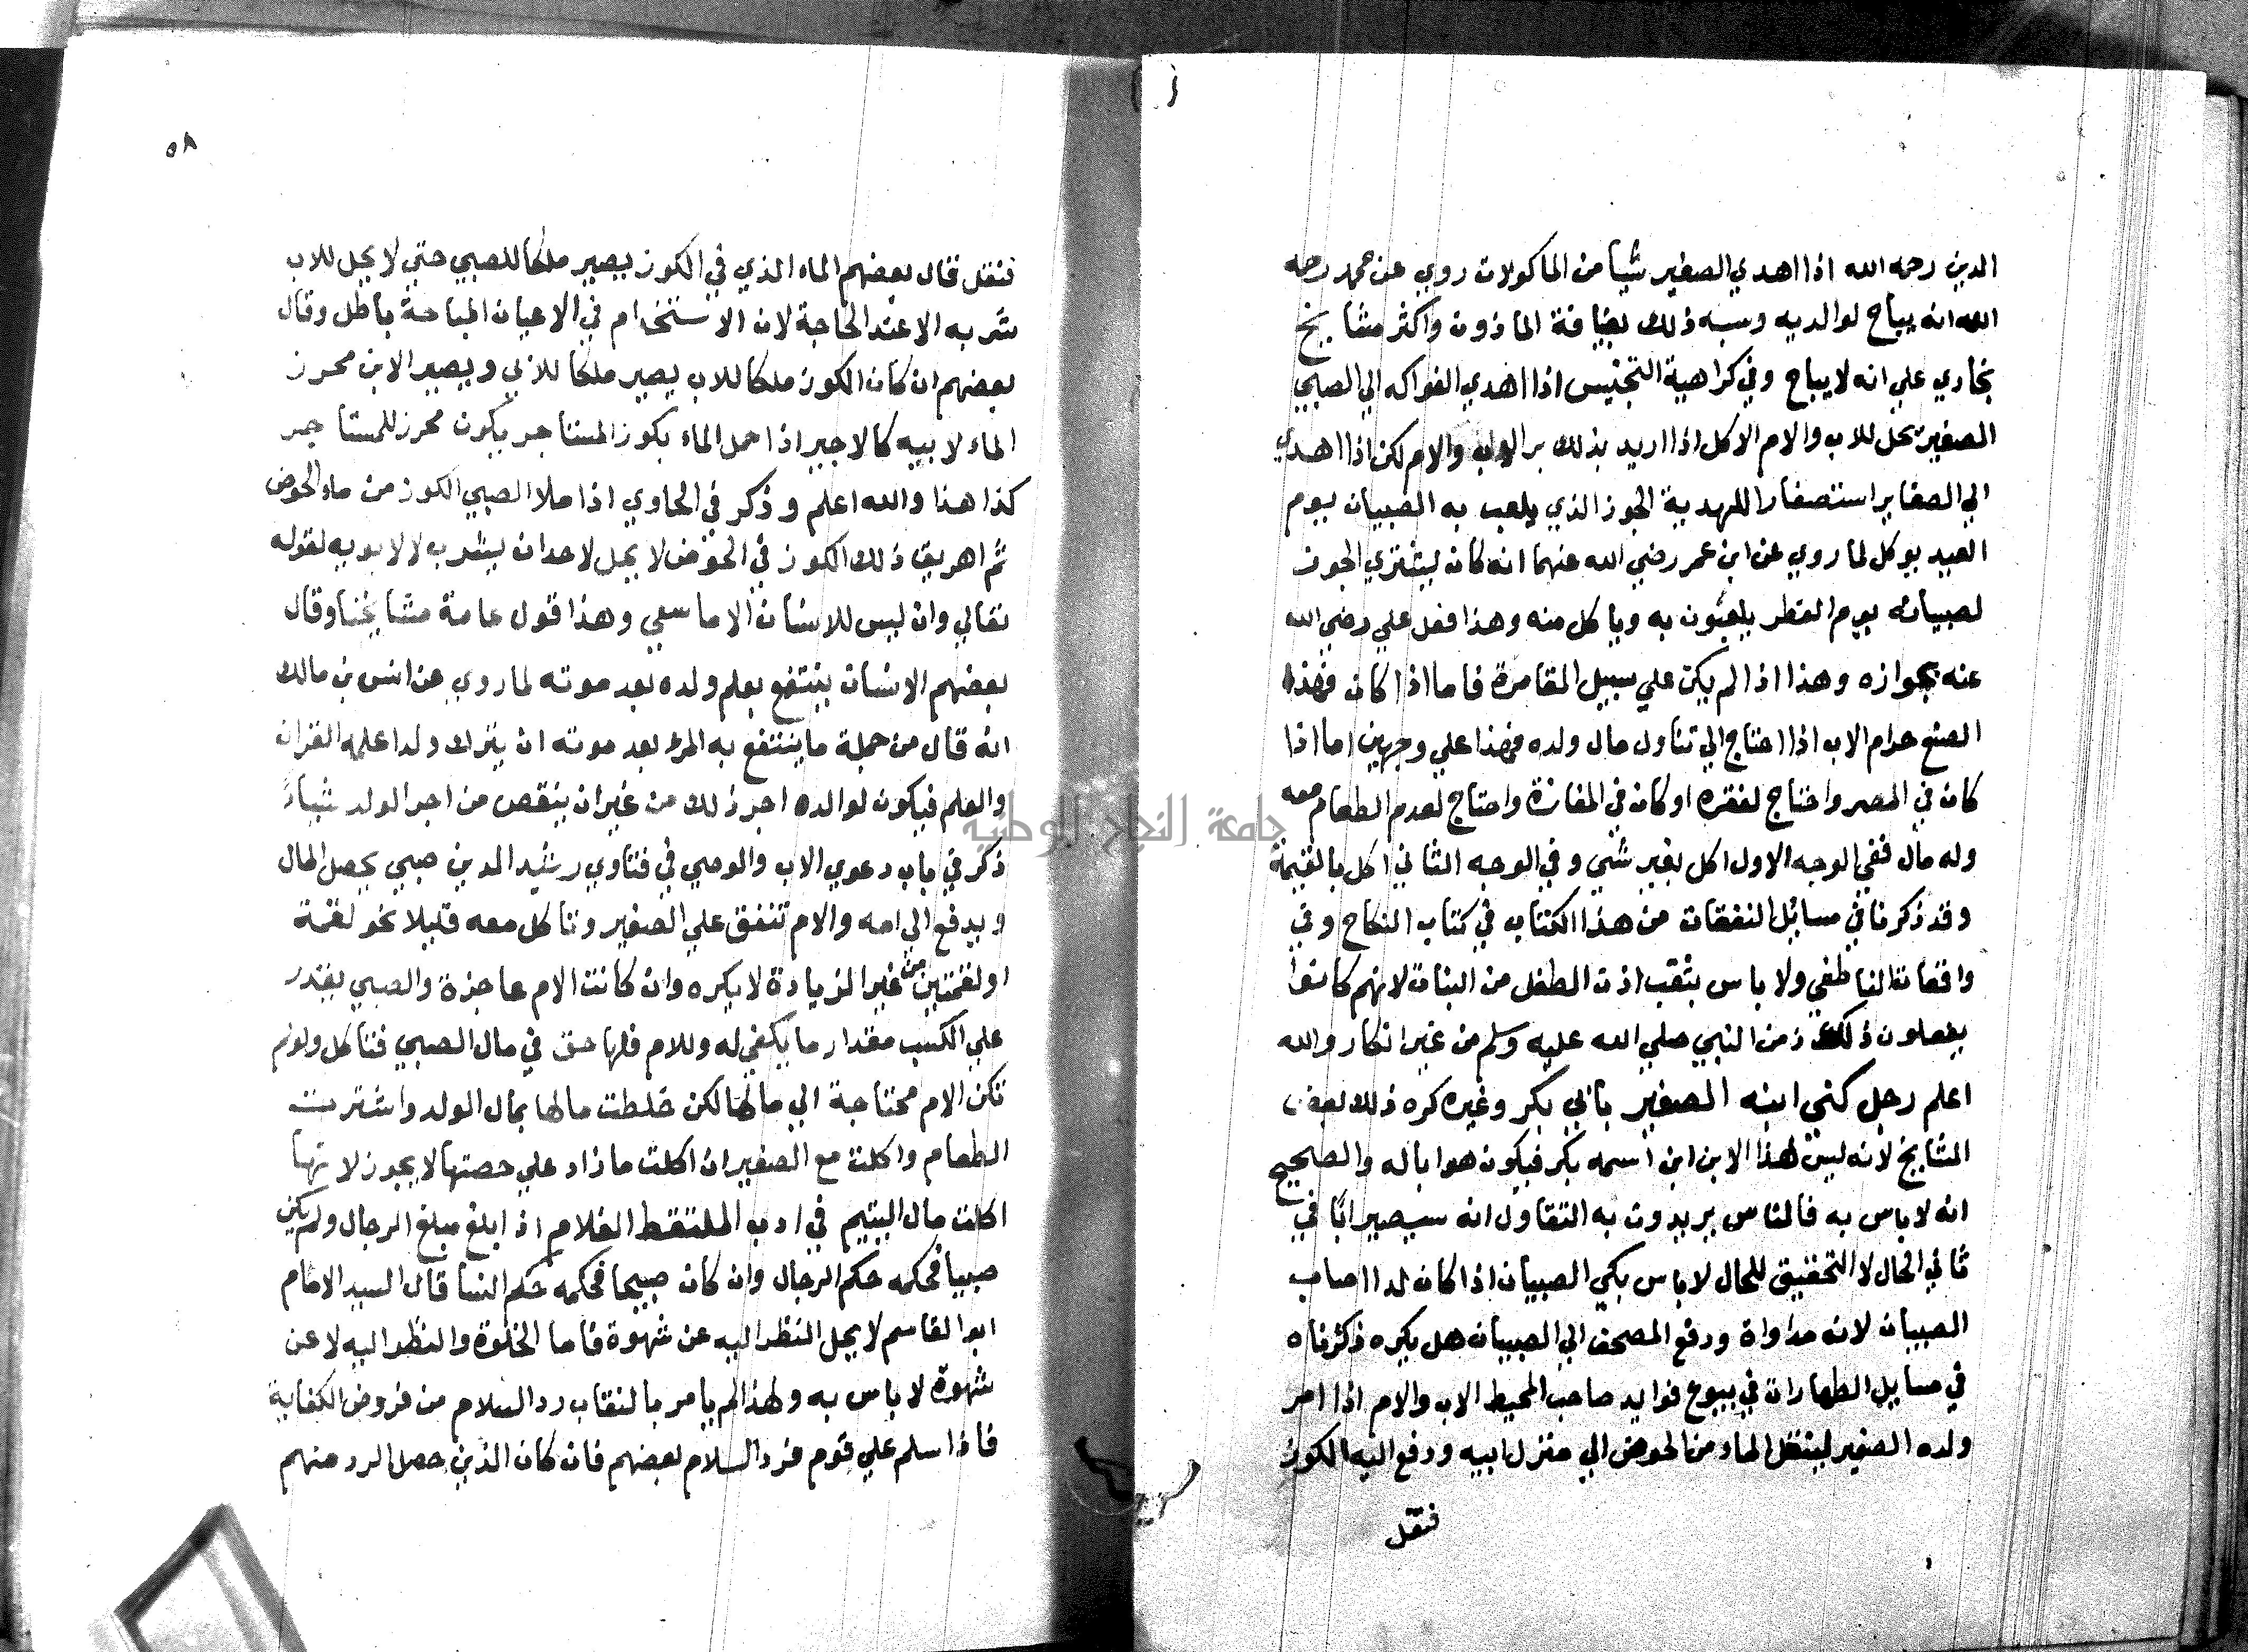 الدين رحمه الله اذا اهدي الصغير شيا من الماكولات روي عن محمد رحمه
الله انه يباح لوالديه وشبه ذلك بضيافة الماذون واكثر مشايخ
بخاري علي انه لا يباح وفي كراهية التجنيس اذا اهدي الفواكه الي الصبي
الصغير يحل للاب والام الاكل اذا اريد بذلك بر الاب والام لكن اذا اهدي
الي الصغاير استصغارا للهدية الجوز الذي يلعب به الصبيان يوم
العيد يوكل لما روي عن ابن عمر رضي الله عنهما انه كان يشتري الجوز
لصبيانه يوم الفطر يلعبون به وياكل منه وهذا فعل علي رضي الله
عنه بجوازه وهذا اذا لم يكن علي سبيل المقامرة فاما اذا كان فهذا
الصنع حرام الاب اذا احتاج الي تناول مال ولده فهذا علي وجهين اما اذا
كان في المصر واحتاج لفقره او كان في المفازة واحتاج لعدم الطعام معه
وله مال ففي الوجه الاول اكل بغير شي وفي الوجه الثاني اكل بالقيمة
وقد ذكرنا في مسائل النفقات من هذا الكتاب في كتاب النكاح وفي
واقعات الناطفي ولا باس بثقب اذن الطفل من البنات لانهم كانوا
يفعلون ذلك زمن النبي صلي الله عليه وسلم من غير انكار والله
اعلم رجل كني ابنه الصغير بابي بكر وغيره كره ذلك بعض
المشايخ لانه ليس لهذا الابن ابن اسمه بكر فيكون هو ابا له والصحيح
انه لا باس به فالناس يريدون به التفاول انه سيصير ابا في
ثاني الحال لا التحقيق للحال لا باس بكي الصبيان اذا كان لدا اصاب
الصبيان لانه مداواة ودفع المصحف الي الصبيان هل يكره ذكرناه
في مسايل الطهارات في بيوع فوايد صاحب المحيط الاب والام اذا امر
ولده الصغير لينقل الماء من الحوض الي منزل ابيه ودفع اليه الكوز
فنقل
٥٨
فنقل قال بعضهم الماء الذي في الكوز يصير ملكا للصبي حتي لا يحل للاب
شربه الا عند الحاجة لان الاستخدام في الاعيان المباحة باطل وقال
بعضهم ان كان الكوز ملكا للاب يصير ملكا للاب ويصير الابن محرز
الماء لابيه كالاجير اذا حمل الماء بكوز المستاجر يكون محرز للمستاجر
كذا هذا والله اعلم وذكر في الحاوي اذا ملا الصبي الكوز من ماء الحوض
ثم اهريق ذلك الكوز في الحوض لا يحل لاحد ان يشرب لا لابويه لقوله
تعالي وان ليس للانسان الا ما سعي وهذا قول عامة مشايخنا وقال
بعضهم الانسان ينتفع بعلم ولده بعد موته لما روي عن انس بن مالك
انه قال من جملة ما ينتفع به المرء بعد موته ان يترك ولدا علمه القران
والعلم فيكون لوالده اجر ذلك من غير ان ينقص من اجر الولد شيا
ذكر في باب دعوي الاب والوصي في فتاوي رشيد الدين صبي يحصل المال
ويدفع الي امه والام تنفق علي الصغير وتاكل معه قليلا نحو لقمة
او لقمتين من غير الزيادة لا يكره وان كانت الام عاجزة والصبي يقدر
علي الكسب مقدار ما يكفي له وللام فلها حق في مال الصبي فتاكل ولو لم
تكن الام محتاجة الي مالها لكن خلطت مالها بمال الولد واشترت
الطعام واكلت مع الصغير ان اكلت ما زاد علي حصتها لا يجوز لانها
اكلت مال اليتيم في ادب الملتقط الغلام اذا بلغ مبلغ الرجال ولم يكن
صبيحا فحكمه حكم الرجال وان كان صبيحا فحكمه حكم النسا قال السيد الامام
ابو القاسم لا يحل النظر اليه عن شهوة فاما الخلوة والنظر اليه لا عن
شهوة لا باس به ولهذا لم يامر بالنقاب رد السلام من فروض الكفاية
فاذا سلم علي قوم فرد السلام بعضهم فان كان الذين حصل الرد منهم
جامعة النجاح الوطنية